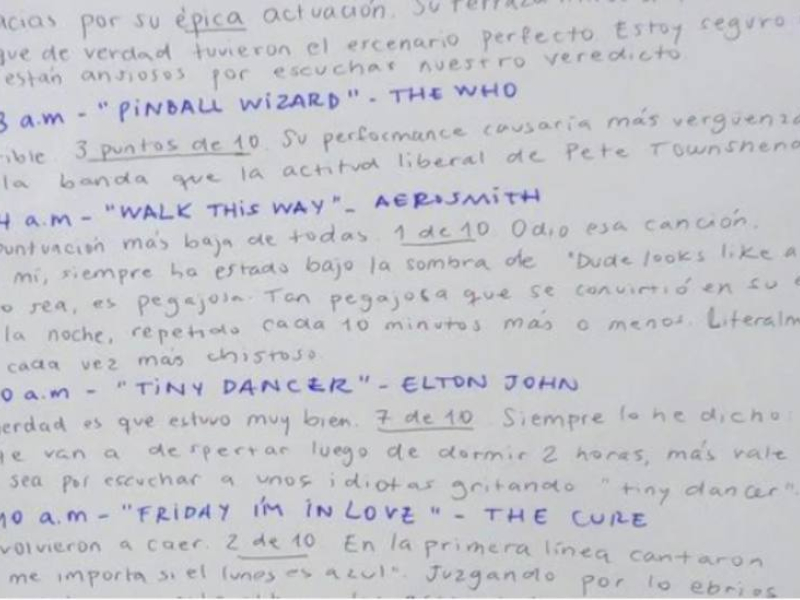 acias por su épica actuación. Su terraza
que de verdad tuvieron el escenario perfecto. Estoy seguro
están ansiosos por escuchar nuestro veredicto.
3 a.m - "PINBALL WIZARD" - THE WHO
ible. 3 puntos de 10. Su performance causaría más vergüenza
la banda que la actitud liberal de Pete Townshend
4 a.m - "WALK THIS WAY" - AEROSMITH
puntuación más baja de todas. 1 de 10 Odio esa canción.
mí, siempre ha estado bajo la sombra de "Dude looks like a
o sea, es pegajosa. Tan pegajosa que se convirtió en su
la noche, repetido cada 10 minutos más o menos. Literalm
cada vez más chistoso.
0 a.m - "TINY DANCER" - ELTON JOHN
erdad es que estuvo muy bien. 7 de 10. Siempre lo he dicho:
e van a despertar luego de dormir 2 horas, más vale
sea por escuchar a unos idiotas gritando "tiny dancer".
10 a.m - "FRIDAY I'M IN LOVE" - THE CURE
volvieron a caer. 2 de 10. En la primera línea cantaron
me importa si el lunes es azul". Juzgando por lo ebrios